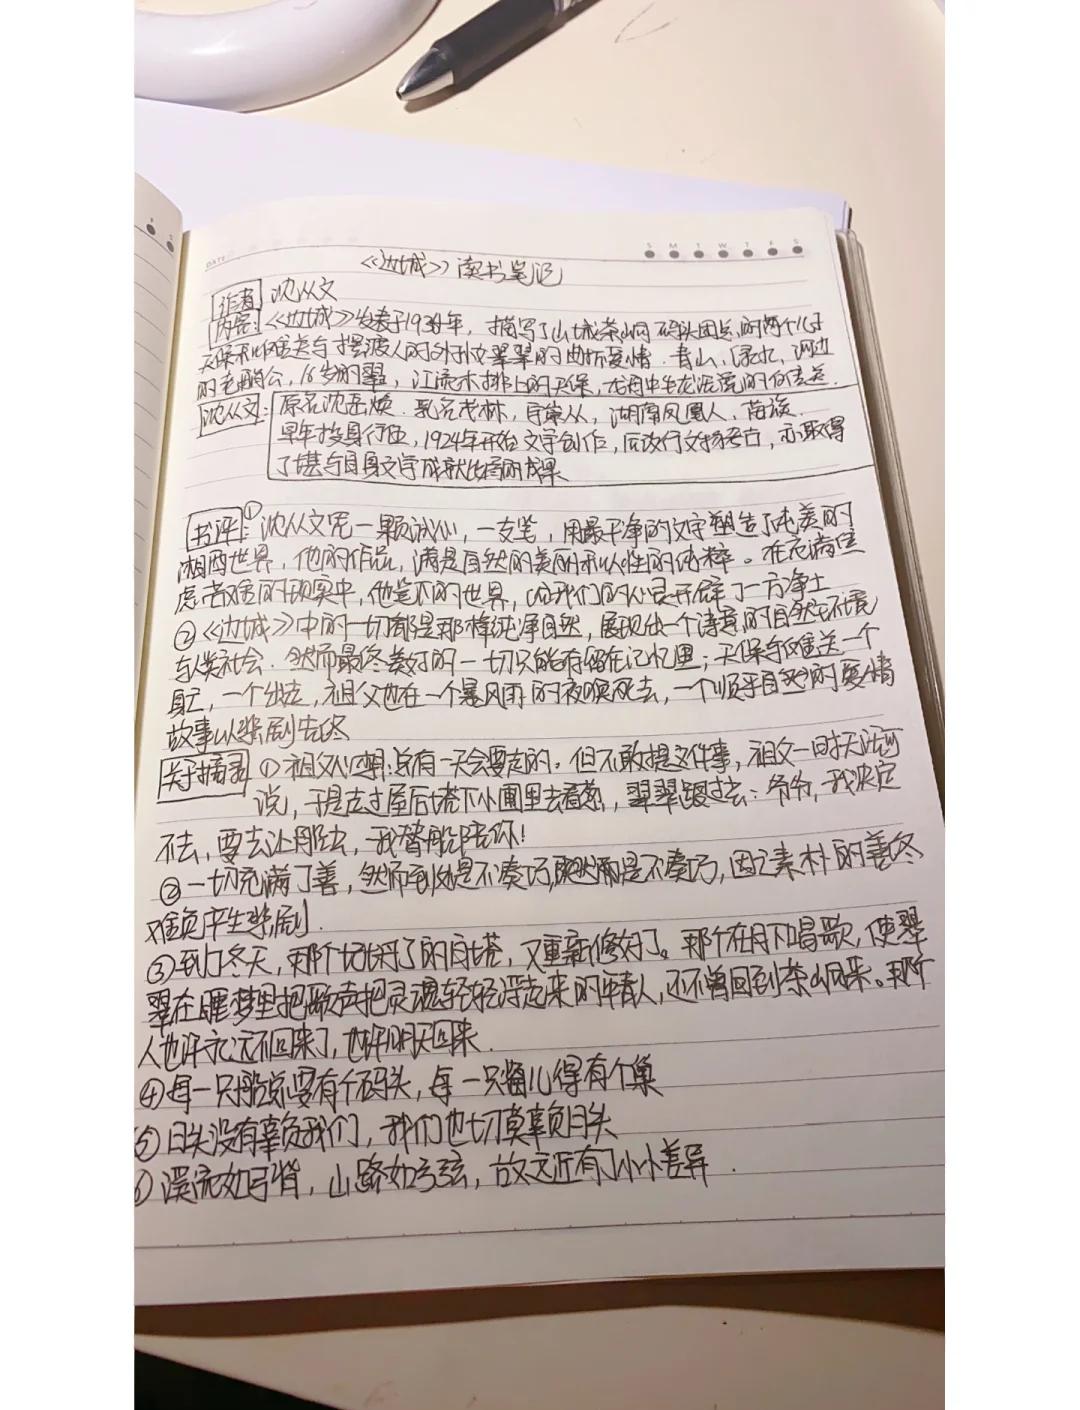 DATE
S M T W T F S
《边城》读书笔记
作者 沈从文
内容:《边城》发表于1934年，描写了山城茶峒码头团总的两个儿子
天保和傩送与摆渡人的外孙女翠翠的曲折爱情．青山，绿水，河边
的老艄公，16岁的翠，江流木排上的天保，龙舟中生龙活虎的傩送．
沈从文: 原名沈岳焕．乳名茂林，字崇从，湖南凤凰人，苗族．
早年投身行伍，1924年开始文学创作，后改行文物考古，亦取得
了堪与自身文学成就比肩的成果
书评:①沈从文凭一颗诚心，一支笔，用最干净的文字塑造了纯美的
湘西世界，他的作品，满是自然的美丽和人性的纯粹。在充满焦
虑苦难的现实中，他笔下的世界，向我们的心灵开辟了一方净土
②《边城》中的一切都是那样纯净自然，展现出一个诗意的自然环境
与人类社会．然而最终美好的一切只能存留在记忆里；天保与傩送一个
身亡，一个出走，祖父也在一个暴风雨的夜晚死去，一个顺乎自然的爱情
故事以悲剧告终
关于摘录 ①祖父心想:总有一天会要走的．但不敢提这件事，祖父一时无话可
说，于是走过屋后塔下小圃里去看葱，翠翠跟过去：爷爷，我决定
不去，要去让船去，我替船陪你！
②一切充满了善，然而到处是不凑巧，既然是不凑巧，因之素朴的善终
难免产生悲剧．
③到了冬天，那个坍圮了的白塔，又重新修好了。那个在月下唱歌，使翠
翠在睡梦里把歌声把灵魂轻轻浮起来的年青人，还不曾回到茶峒来。那个
人也许永远不回来了，也许明天回来．
④每一只船总要有个码头，每一只雀儿得有个巢
⑤日头没有辜负我们，我们也切莫辜负日头
⑥溪流如弓背，山路如弓弦，故远近有了小小差异．